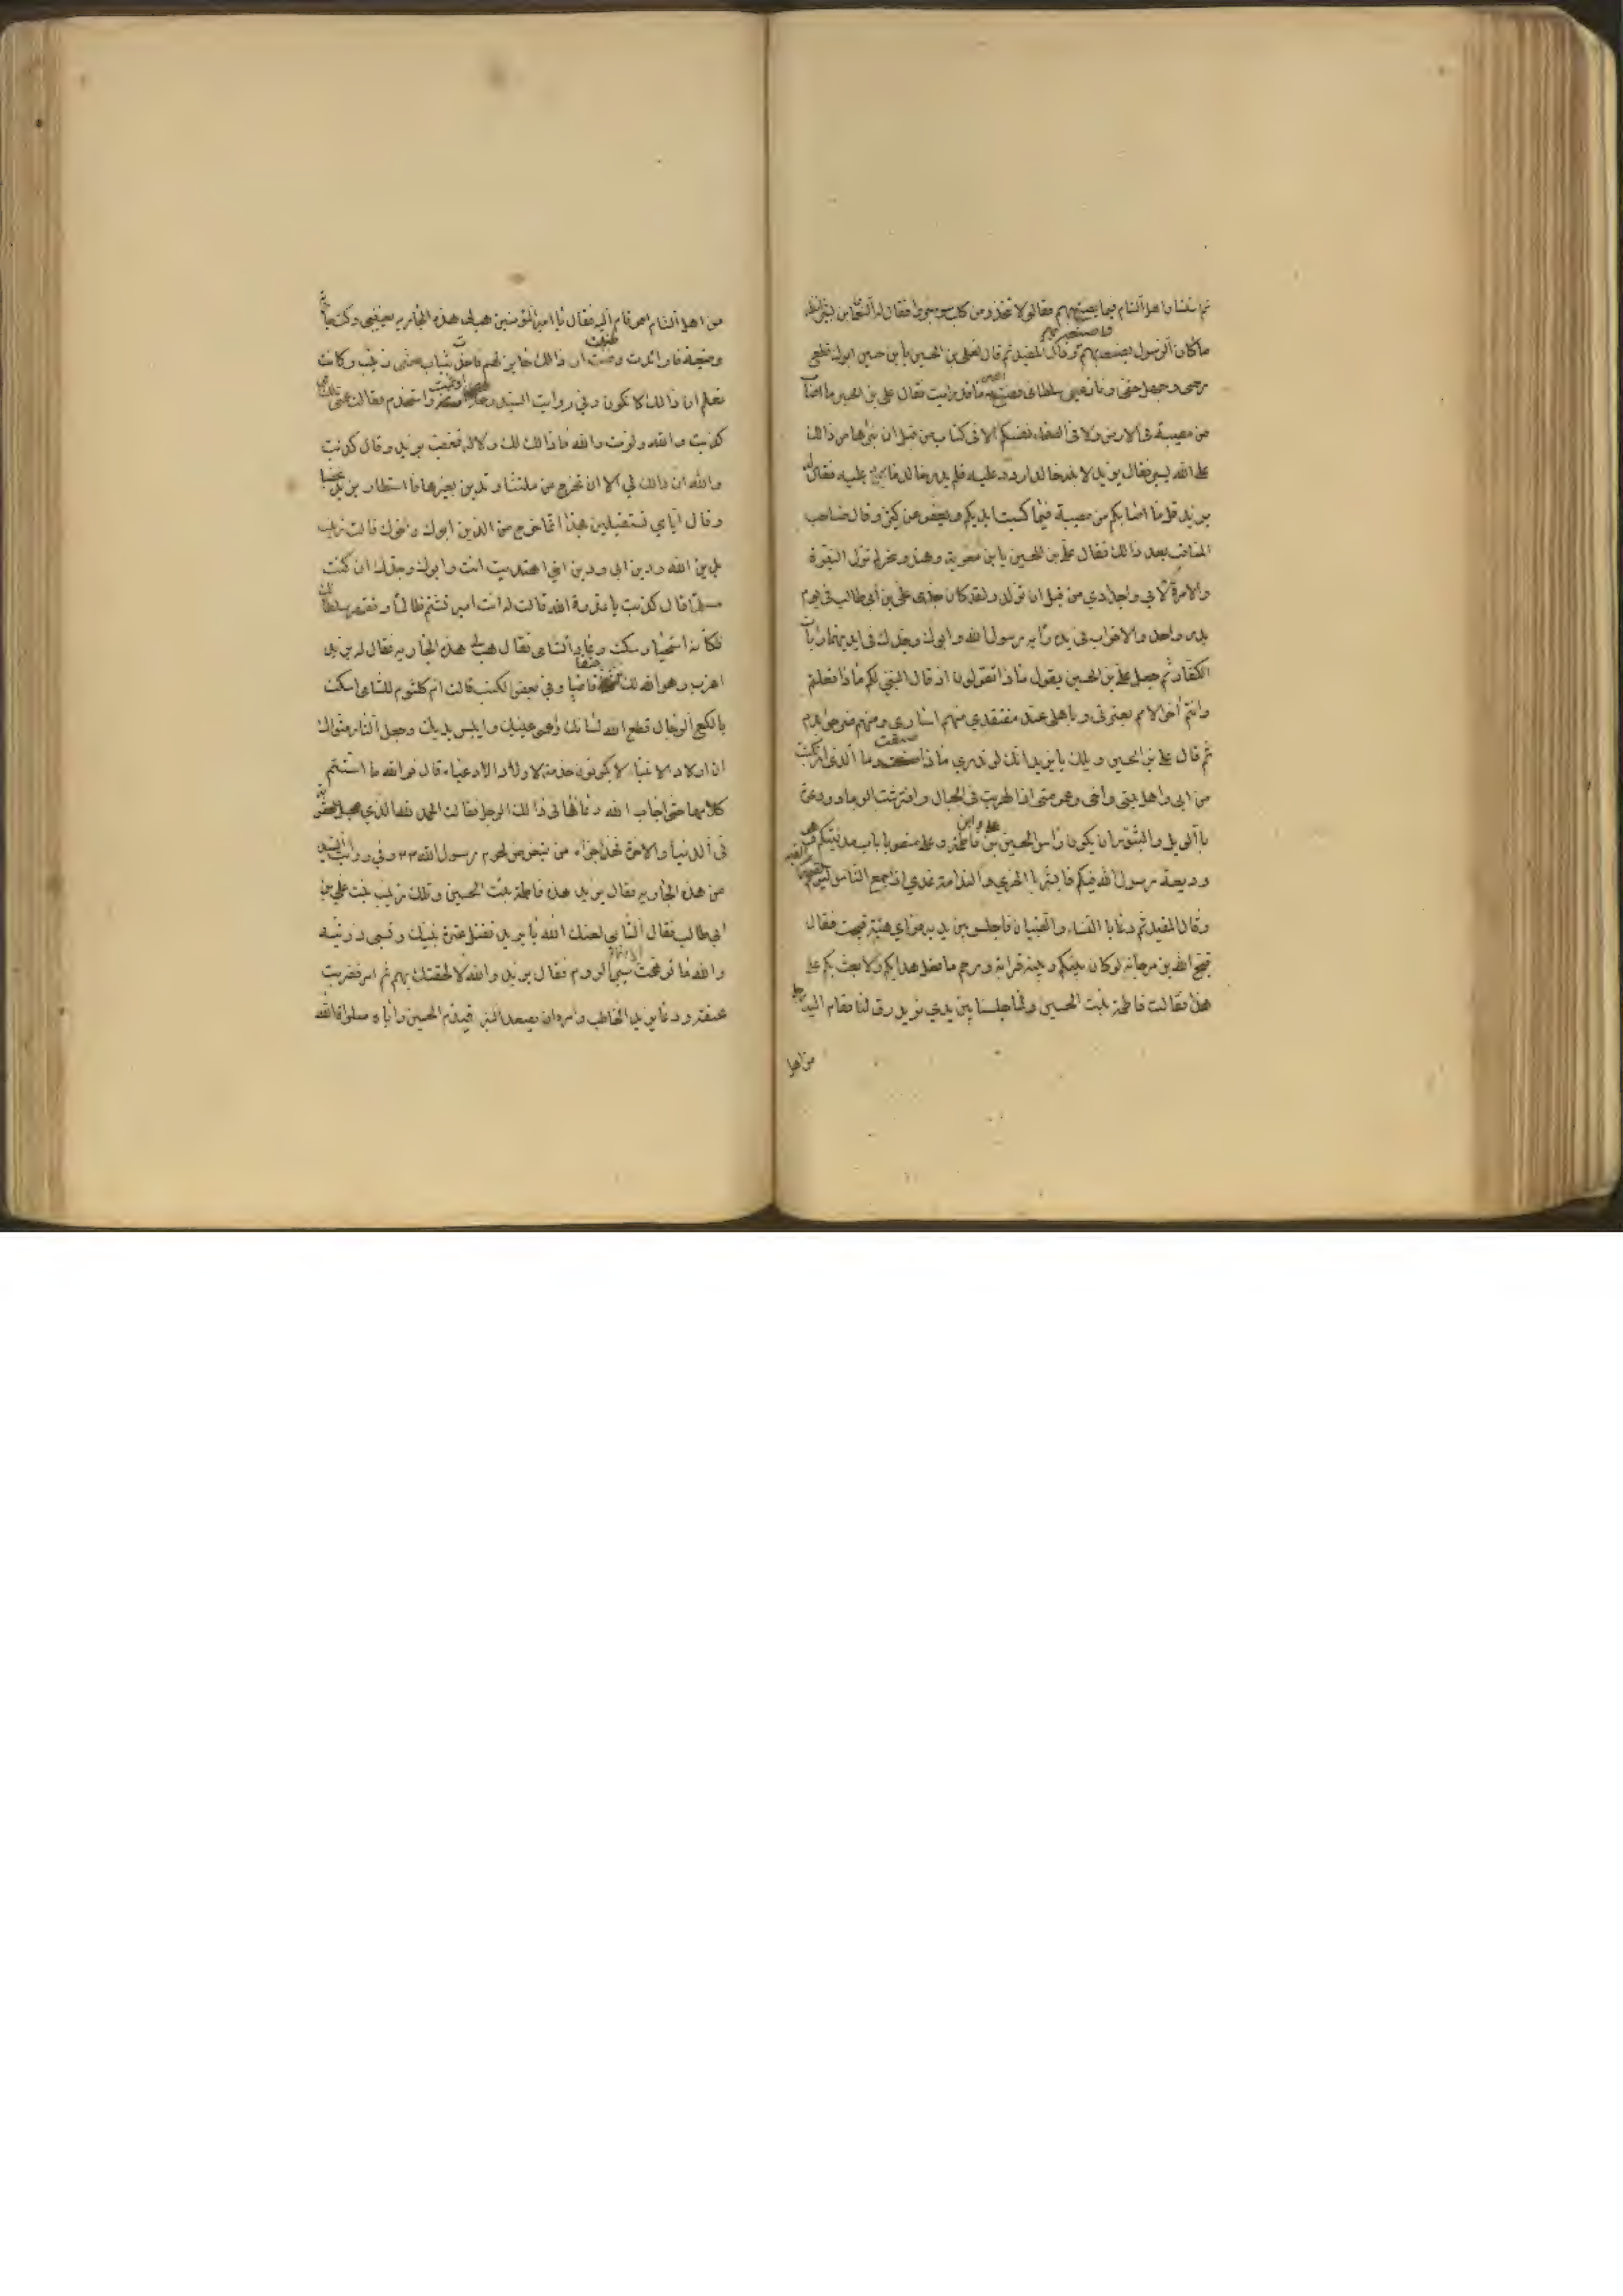 ثم استشار اهل الشام فيما يصنع بهم فقالوا لا تتخذ من كلب سوء جروا فقال له النعمان بن بشير انظر
ما كان الرسول يصنعه بهم فاصنعه بهم وقال المفيد ثم قال لعلي بن الحسين يا بن حسين ابوك قطع
رحمي وجهل حقي ونازعني سلطاني فصنع الله به ما قد رايت فقال علي بن الحسين ما اصاب
من مصيبة في الارض ولا في انفسكم الا في كتاب من قبل ان نبرأها ان ذالك
على الله يسير فقال يزيد لابنه خالد اردد عليه فلم يدر خالد ما يرد عليه فقال له
يزيد قل ما اصابكم من مصيبة فبما كسبت ايديكم ويعفو عن كثير وقال صاحب
المناقب بعد ذالك فقال علي بن الحسين يا بن معوية وهند وصخر لم تزل النبوة
والامرة لابي واجدادي من قبل ان تولد ولقد كان جدي علي بن ابي طالب في يوم
بدر واحد والاحزاب في يده راية رسول الله وابوك وجدك في ايديهما رايات
الكفار ثم جعل علي بن الحسين يقول ماذا تقولون اذ قال النبي لكم ماذا فعلتم
وانتم آخر الامم بعترتي وباهلي عند مفتقدي منهم اسارى ومنهم ضرجوا بدم
ثم قال علي بن الحسين ويلك يا يزيد انك لو تدري ماذا صنعت وما الذي ارتكبت
من ابي واهل بيتي واخي وعمومتي اذا لهربت في الجبال وافترشت الرماد ودعوت
بالويل والثبور ان يكون راس الحسين بن فاطمة وعلي منصوبا باب مدينتكم وهو
وديعة رسول الله فيكم فابشر بالخزي والندامة غدا اذا جمع الناس ليوم القيمة
وقال المفيد ثم دعا بالنساء والصبيان فاجلسوا بين يديه فراى هيئة قبيحة فقال
قبح الله بن مرجانة لو كان بينكم وبينه قرابة ورحم ما فعل هذا بكم ولا بعث بكم على
هذا فقالت فاطمة بنت الحسين ولما جلسنا بين يدي يزيد رق لنا فقام اليه رجل
من اهل
من اهل الشام احمر قام اليه فقال يا امير المؤمنين هب لي هذه الجارية يعنيني وكنت جارية
وضيئة فارتعدت وظننت ان ذالك جايز لهم فاخذت بثياب عمتي زينب وكانت
تعلم ان ذالك لا يكون وفي رواية السيد اوتمت واستخدم فقالت عمتي للشامي
كذبت والله ولؤمت والله ما ذالك لك ولا له فغضب يزيد وقال كذبت
والله ان ذالك لي الا ان تخرج من ملتنا وتدين بغيرها فاستطار يزيد غضبا
وقال اياي تستقبلين بهذا انما خرج من الدين ابوك واخوك قالت زينب
بدين الله ودين ابي ودين اخي اهتديت انت وابوك وجدك ان كنت
مسلما قال كذبت يا عدوة الله قالت له انت امير تشتم ظالما وتقهر بسلطانك
فكأنه استحيا وسكت وعاد الشامي فقال هب لي هذه الجارية فقال له يزيد
اعزب وهب الله لك حتفا قاضيا وفي بعض الكتب قالت ام كلثوم للشامي اسكت
يا لكع الرجال قطع الله لسانك واعمى عينيك وايبس يديك وجعل النار مثواك
ان اولاد الانبياء لا يكونون خدمة لاولاد الادعياء قال فوالله ما استتم
كلامها حتى اجاب الله دعائها في ذالك الرجل فقالت الحمد لله الذي عجل لك العقوبة
في الدنيا والاخرة فهذا جزاء من يتعرض لحرم رسول الله ٣٣ وفي رواية السيد
من هذه الجارية فقال يزيد هذه فاطمة بنت الحسين وتلك زينب بنت علي بن
ابي طالب فقال الشامي لعنك الله يا يزيد تقتل عترة نبيك وتسبي ذريته
والله ما توهمت الا انهم سبي الروم فقال يزيد والله لالحقنك بهم ثم امر فضربت
عنقه ودعا يزيد الخاطب وامره ان يصعد المنبر فيذم الحسين واباه صلوات الله